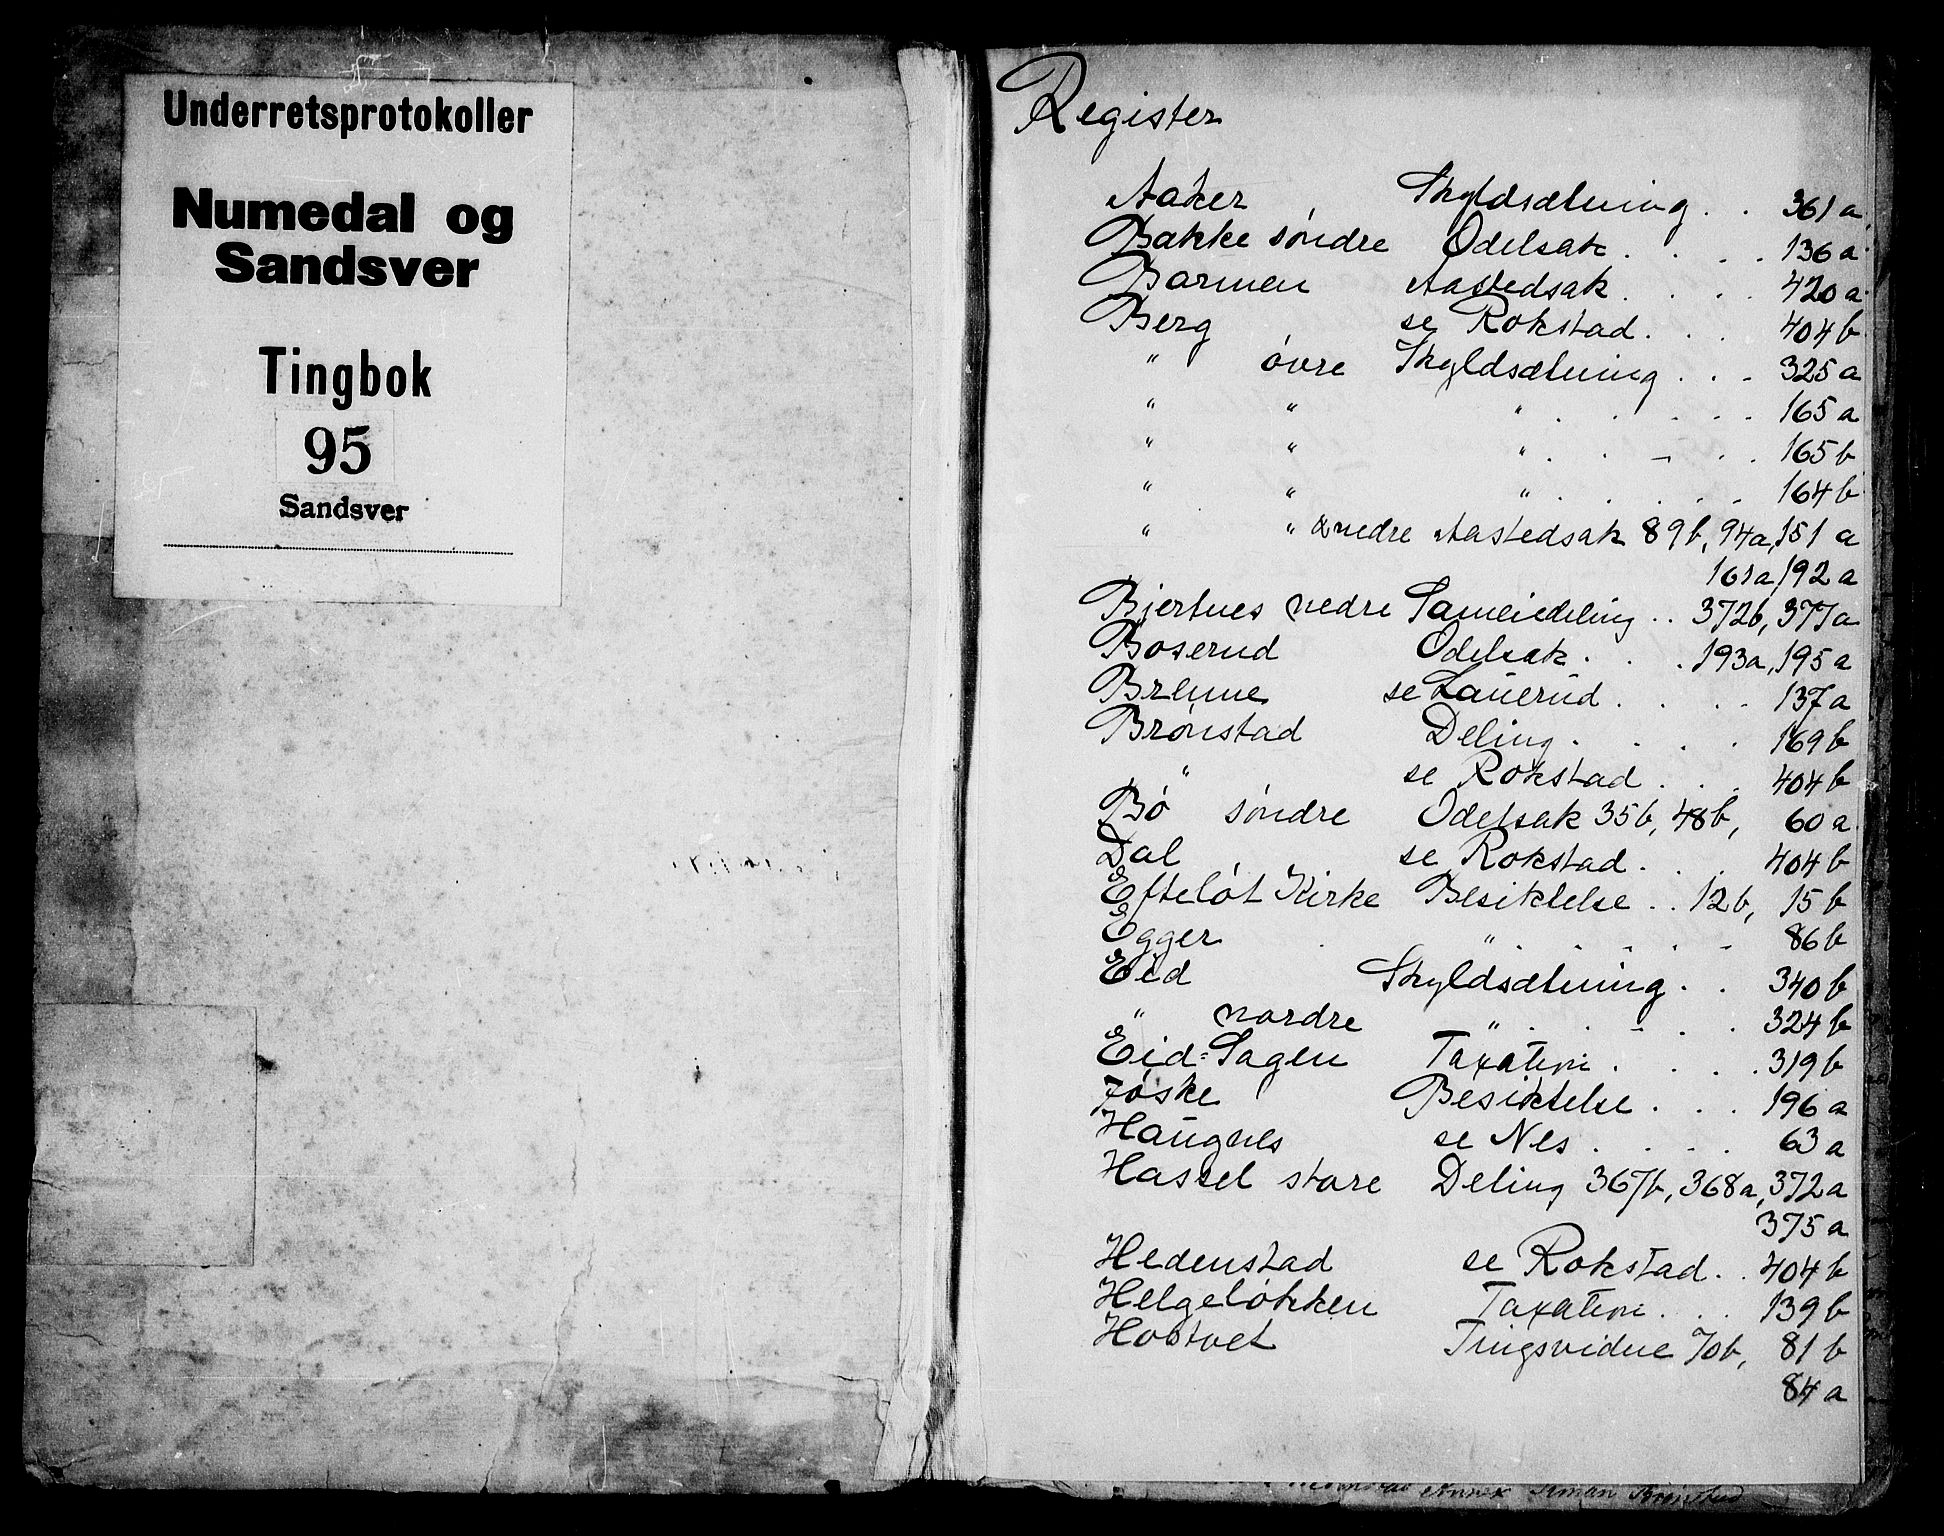 Underretsprotokoller
Numedal og
Sandsver
Tingbok
95
Sandsver
Register
Aaker Skyldsætning . . 361a
Bakke søndre Odelsak . . . . 136a
Barmen Aastedsak . . . . 420a
Berg se Rokstad . . . 404b
" øvre Skyldsætning . . . 325a
" " " . . . . . 165a
" " " . . . . . 165b
" " " . . . . . 164b
" " & nedre Aastedsak 89b, 94a, 151a
161a, 192a
Bjertnes nedre Sameiedeling . . 372b, 377a
Boserud Odelsak . . . 193a, 195a
Brenne se Lauerud . . . . 137a
Brønstad Deling . . . . 169b
" se Rokstad . . . 404b
Bø søndre Odelsak 35b, 48b, 60a
Dal se Rokstad . . . 404b
Efteløt Kirke Besiktelse . . 12b, 15b
Egger " . . . . 86b
Eid Skyldsætning . . 340b
" nordre " . . . . . 324b
Eid-Sagen Taxation . . . . 319b
Føske Besiktelse . . . 196a
Haugnes se Nes . . . . 63a
Hassel store Deling 367b, 368a, 372a
375a
Hedenstad se Rokstad . . 404b
Helgeløkken Taxation . . . 139b
Hobtvet Tingsvidne 70b, 81b
84a
Annex Simen Brønstad